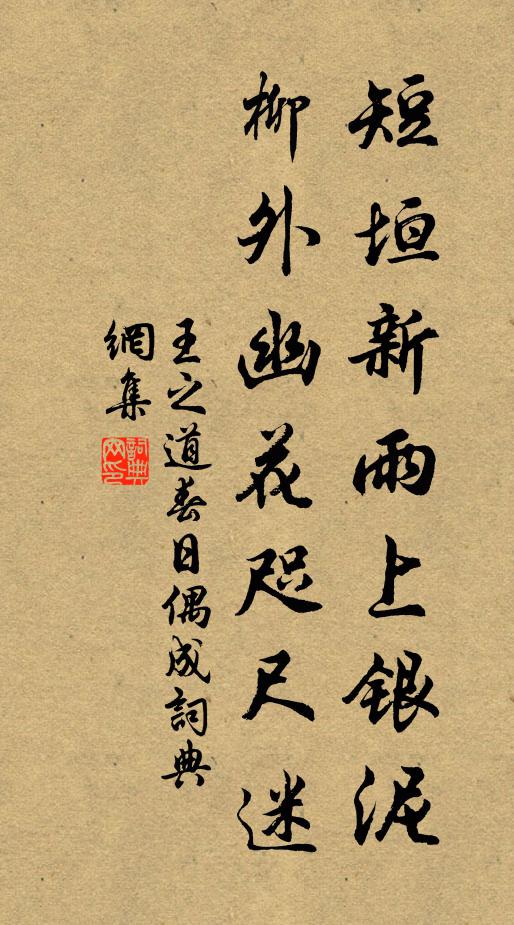 短垣新雨上銀泥
柳外幽花咫尺迷
王之道春日偶成詞典
網集
詞典網印